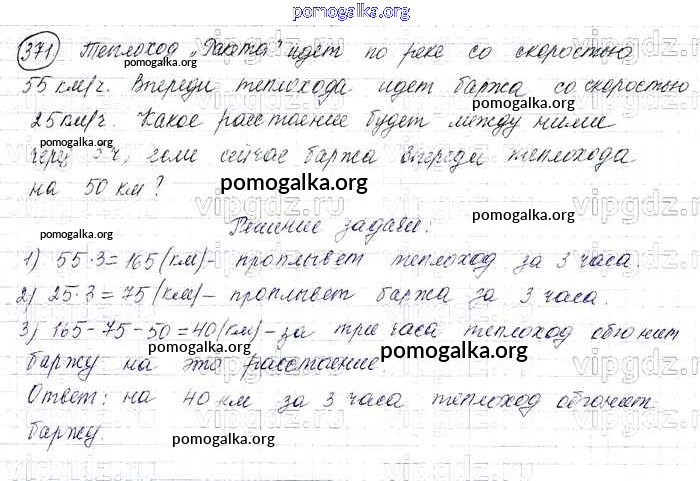 pomogalka.org
371 Теплоход „Ракета" идет по реке со скоростью
pomogalka.org
55 км/ч. Впереди теплохода идет баржа со скоростью
pomogalka.org
25 км/ч. Какое расстояние будет между ними
через 3 ч, если сейчас баржа впереди теплохода
на 50 км?
pomogalka.org
pomogalka.org
Решение задачи:
1) 55·3=165 (км) – проплывет теплоход за 3 часа.
pomogalka.org
2) 25·3=75 (км) – проплывет баржа за 3 часа.
3) 165-75-50=40 (км) – за три часа теплоход обгонит
pomogalka.org
баржу на это расстояние.
pomogalka.org
Ответ: на 40 км за 3 часа теплоход обгонит
баржу.
pomogalka.org
vipgdz.ru